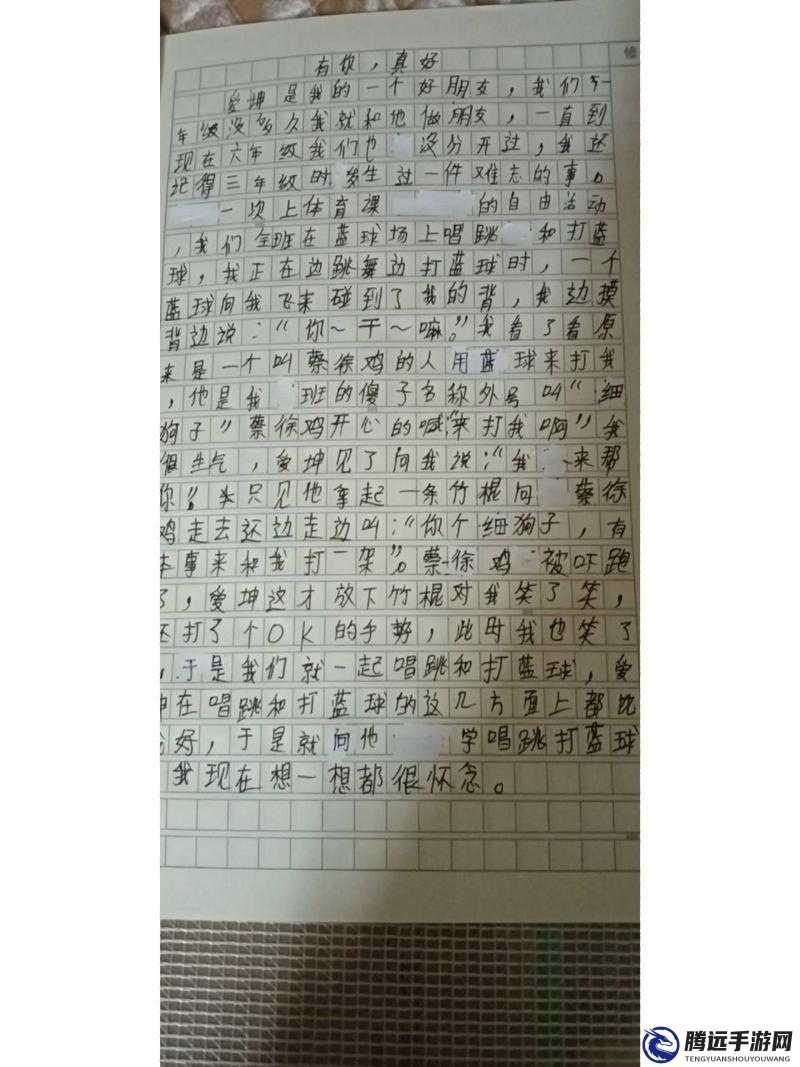 修
有你，真好
爱坤是我的一个好朋友，我们一
年级没多久我就和他做朋友，一直到
现在六年级我们也没分开过，我还
记得三年级时发生过一件难忘的事。
一次上体育课的自由活动
，我们全班在蓝球场上唱跳和打蓝
球，我正在边跳舞边打蓝球时，一个
蓝球向我飞来碰到了我的背，我边摸
背边说：“你～干～嘛。”我看了看原
来是一个叫蔡徐鸡的人用蓝球来打我
，他是我班的傻子名称外号叫“细
狗子”蔡徐鸡开心的喊“来打我啊”我
很生气，爱坤见了向我说：“我来帮
你。”只见他拿起一条竹棍向蔡徐
鸡走去还边走边叫：“你个细狗子，有
本事来和我打一架”。蔡徐鸡被吓跑
了，爱坤这才放下竹棍对我笑了笑，
还打了个OK的手势，此时我也笑了
，于是我们就一起唱跳和打蓝球，爱
坤在唱跳和打蓝球的这几方面上都比
我好，于是就向他学唱跳打蓝球
我现在想一想都很怀念。
腾远手游网
TENGYUANSHOUYOUWANG